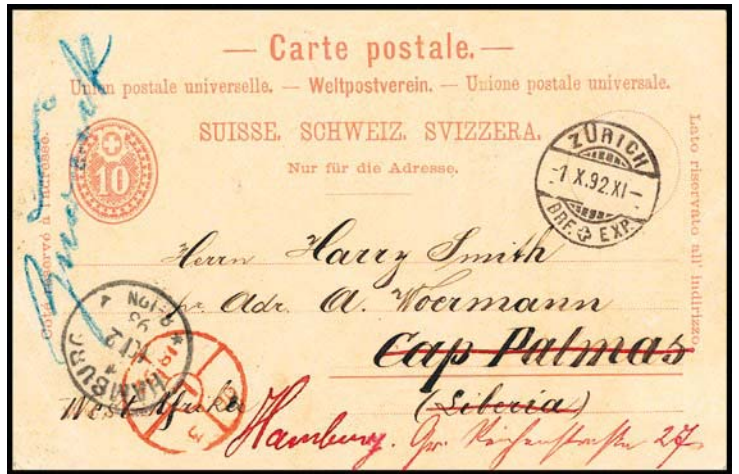 — Carte postale. —
Union postale universelle. — Weltpostverein. — Unione postale universale.
SUISSE. SCHWEIZ. SVIZZERA.
Nur für die Adresse.
Côté réservé à l'adresse.
Lato riservato all' indirizzo.
10
ZÜRICH
-1 X.92.XI-
BRF. EXP.
Herrn Harry Smith
pr. Adr. A. Woermann
Cap Palmas
(Liberia)
West-Afrika
Hamburg. Gr. Reichenstraße 27
HAMBURG